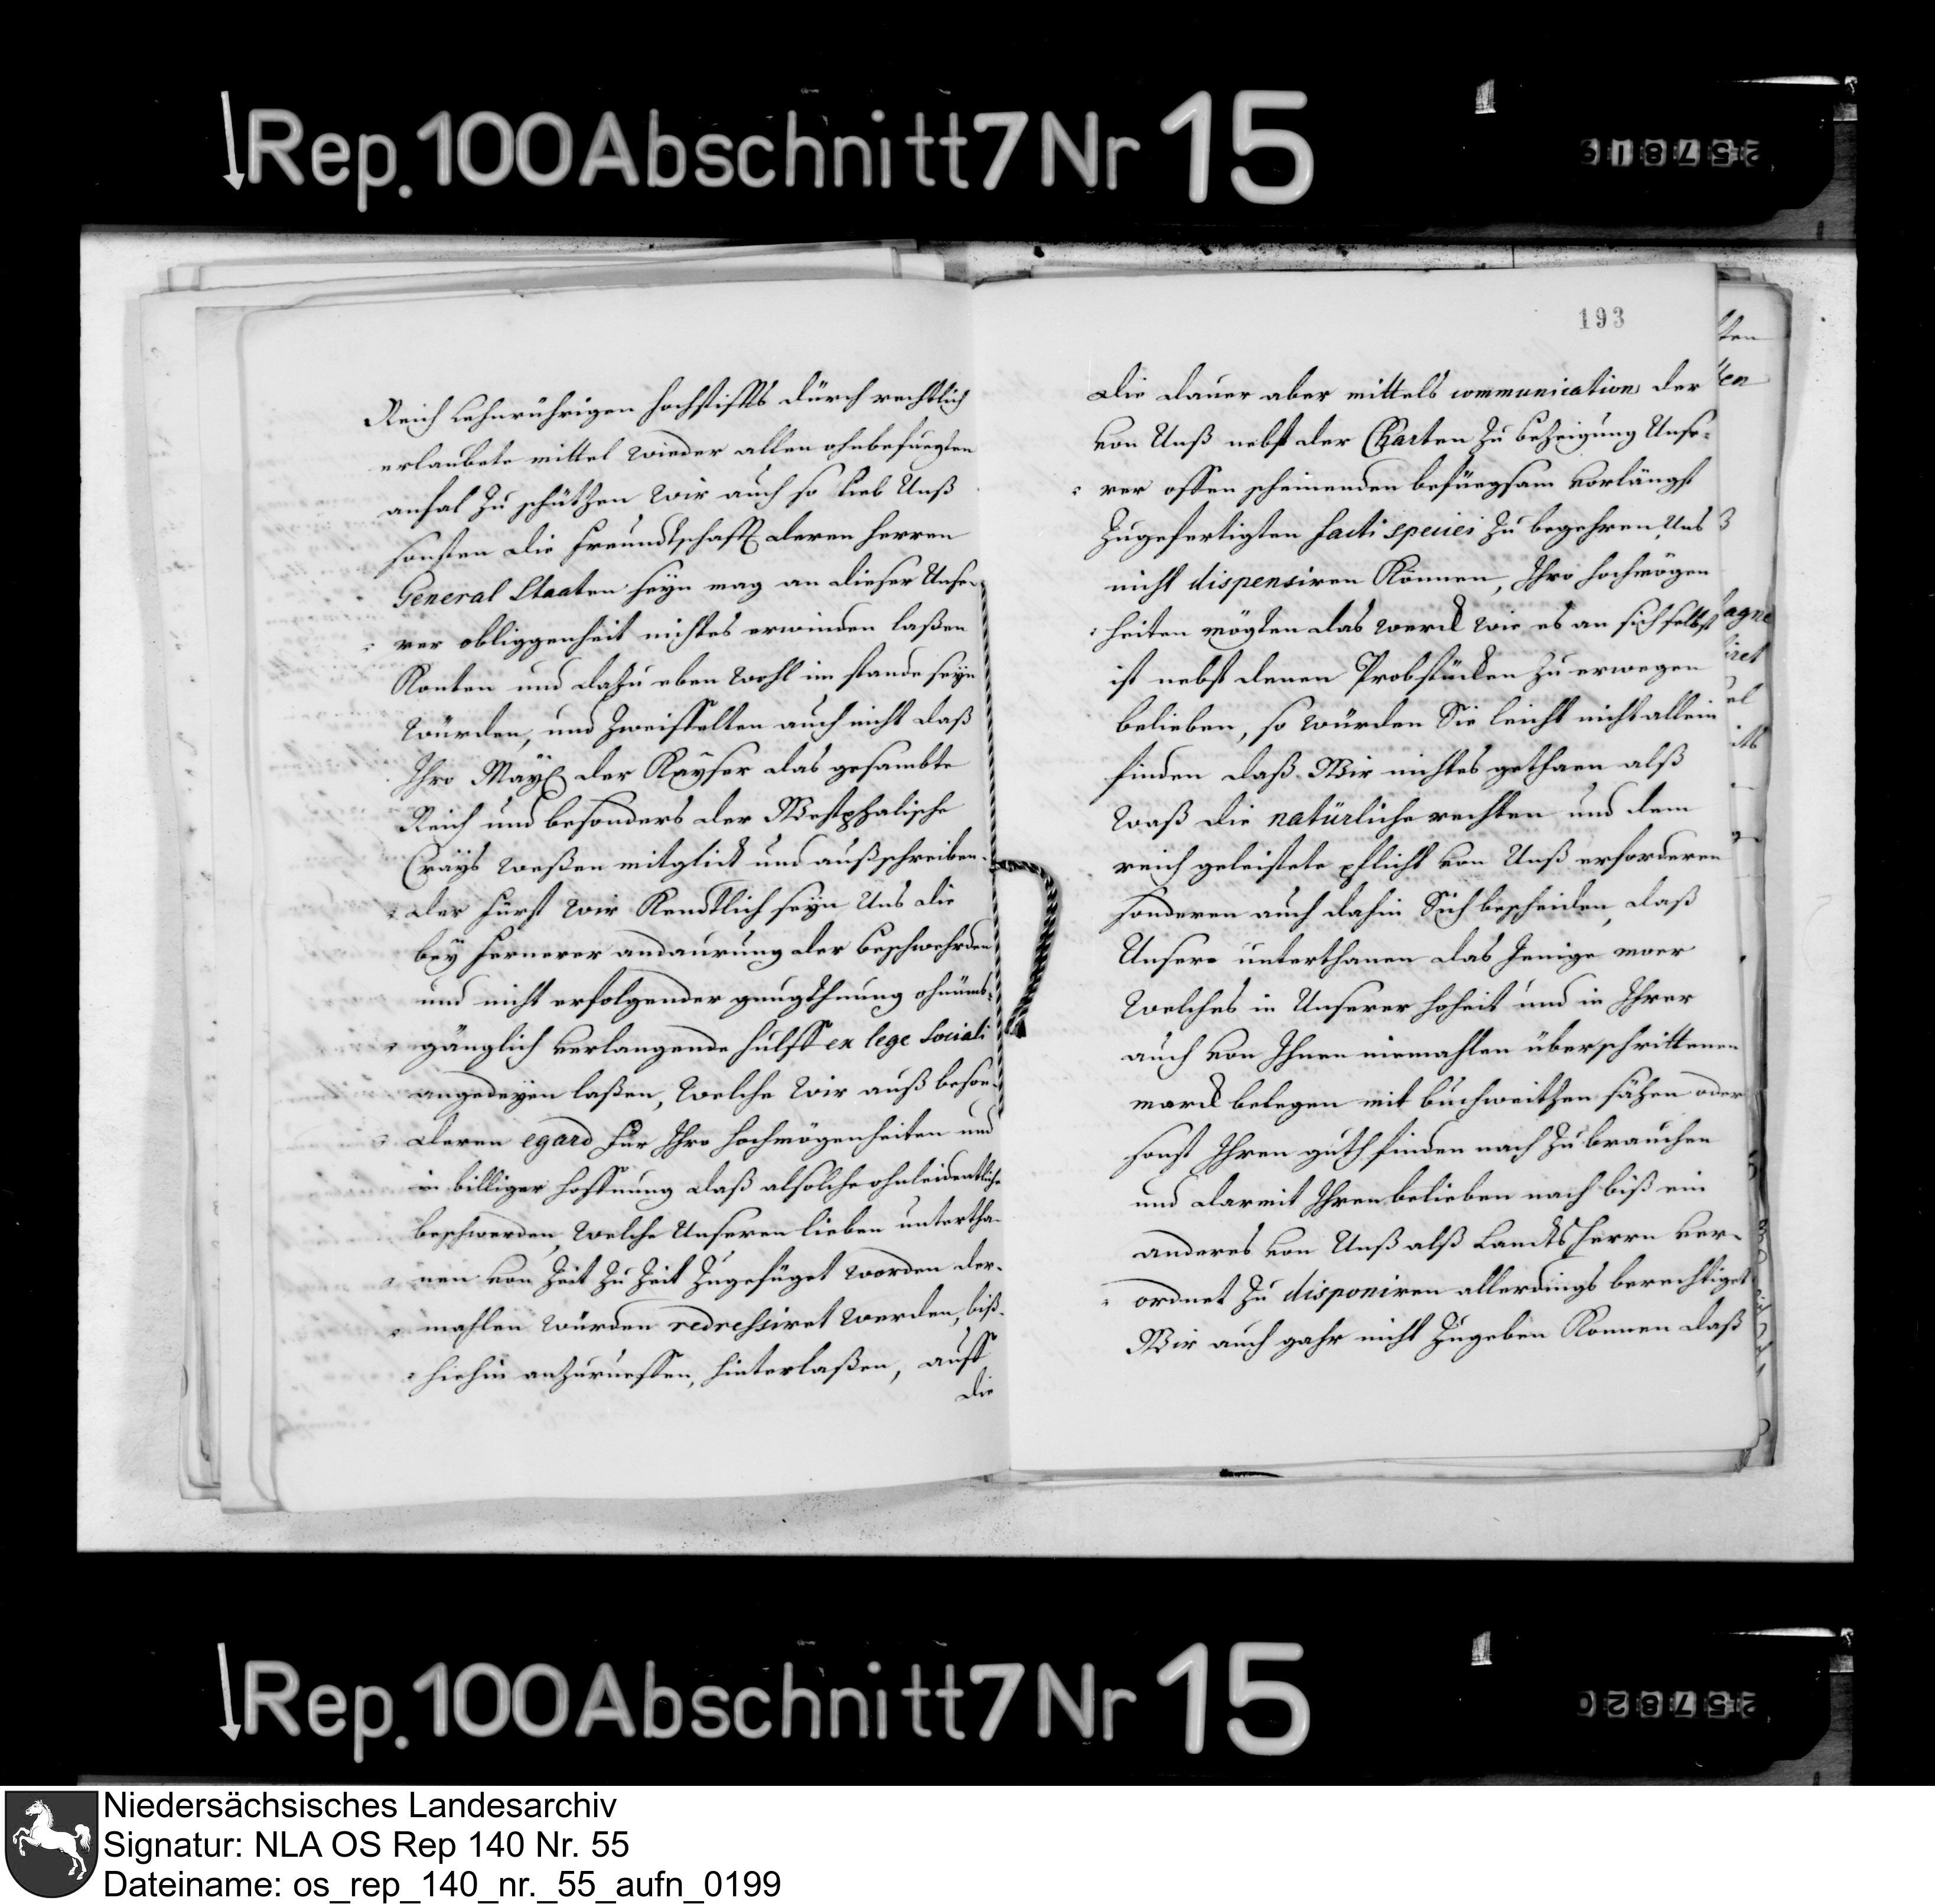 Rep. 100 Abschnitt 7 Nr 15
257819
Reich Lehnrührigen hochstiffts dürch rechtlich
erlaubete mittel wieder allen ohnbefuegten
anfal zu schützen wir auch so lieb Unß
sonsten die Freundtschafft deren Herren
General Staaten seyn mag an dieser Unse-
rer obliggenheit nichtes erwinden laßen
Konten und dazu eben wohl im stande seyn
würden, und zweiffelten auch nicht daß
Ihro Mayt der Kayser das gesambte
Reich und besonders der Westphalische
Crays weßen mitglidt und außschreiben-
der Fürst wir Kendtlich seyn Uns die
bey fernerer andaurung der beschwehrden
und nicht erfolgender gnugthuung ohnumb-
gänglich verlangende hülff ex lege Sociali
angedeyen laßen, welche wir auß beson-
deren egard für Ihro hochmögenheiten und
in billiger hoffnung daß alsolche ohnleidentliche
beschwerden, welche Unseren lieben untertha-
nen von Zeit zu Zeit zugefüget worden der-
mahlen würden redressiret werden, biß-
hiehin anzurueffen, hinterlaßen, auff
die
193
die dauer aber mittels communication der
von Unß nebst der Charten zu bezeigung Unse-
rer offen scheinenden befüegsam vorlängst
zugefertigten facti speciei zu begehren, Uns
nicht dispensiren Können, Ihro hochmögen
heiten mögten das werck wie es an sich selbst
ist nebst denen Probstücken zu erwegen
belieben, so würden Sie leicht nicht allein
finden daß Wir nichtes gethaen alß
waß die natürliche rechten und dem
reich geleistete pflicht von Unß erforderen
sonderen auch dahin Sich bescheiden, daß
Unsere unterthanen das Jenige moer
welches in Unserer hoheit und in Ihrer
auch von Ihnen niemahlen überschrittenen
marck belegen mit buchweitzen sähen oder
sonst Ihren guth finden nach zu brauchen
und darmit Ihren belieben nach biß ein
anderes von Unß alß Landts Herrn ver-
ordnet zu disponiren allerdings berechtiget
Wir auch gahr nicht zugeben Konnen daß
Rep. 100 Abschnitt 7 Nr 15
257820
Niedersächsisches Landesarchiv
Signatur: NLA OS Rep 140 Nr. 55
Dateiname: os_rep_140_nr._55_aufn_0199